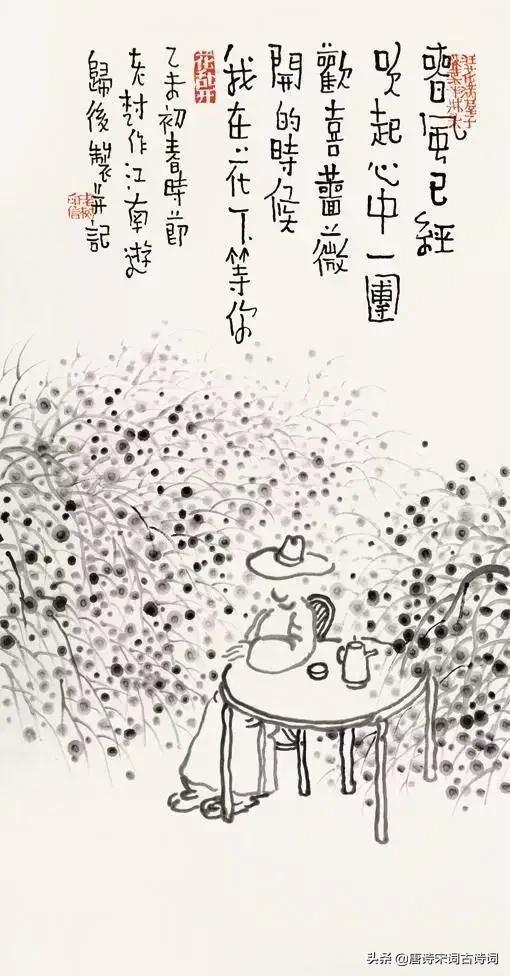 春風已經
吹起心中一團
歡喜薔薇
開的時候
我在花下等你
花乱开
乙未初春時節
老樹作江南遊
歸後製并記
头条 @唐诗宋词古诗词